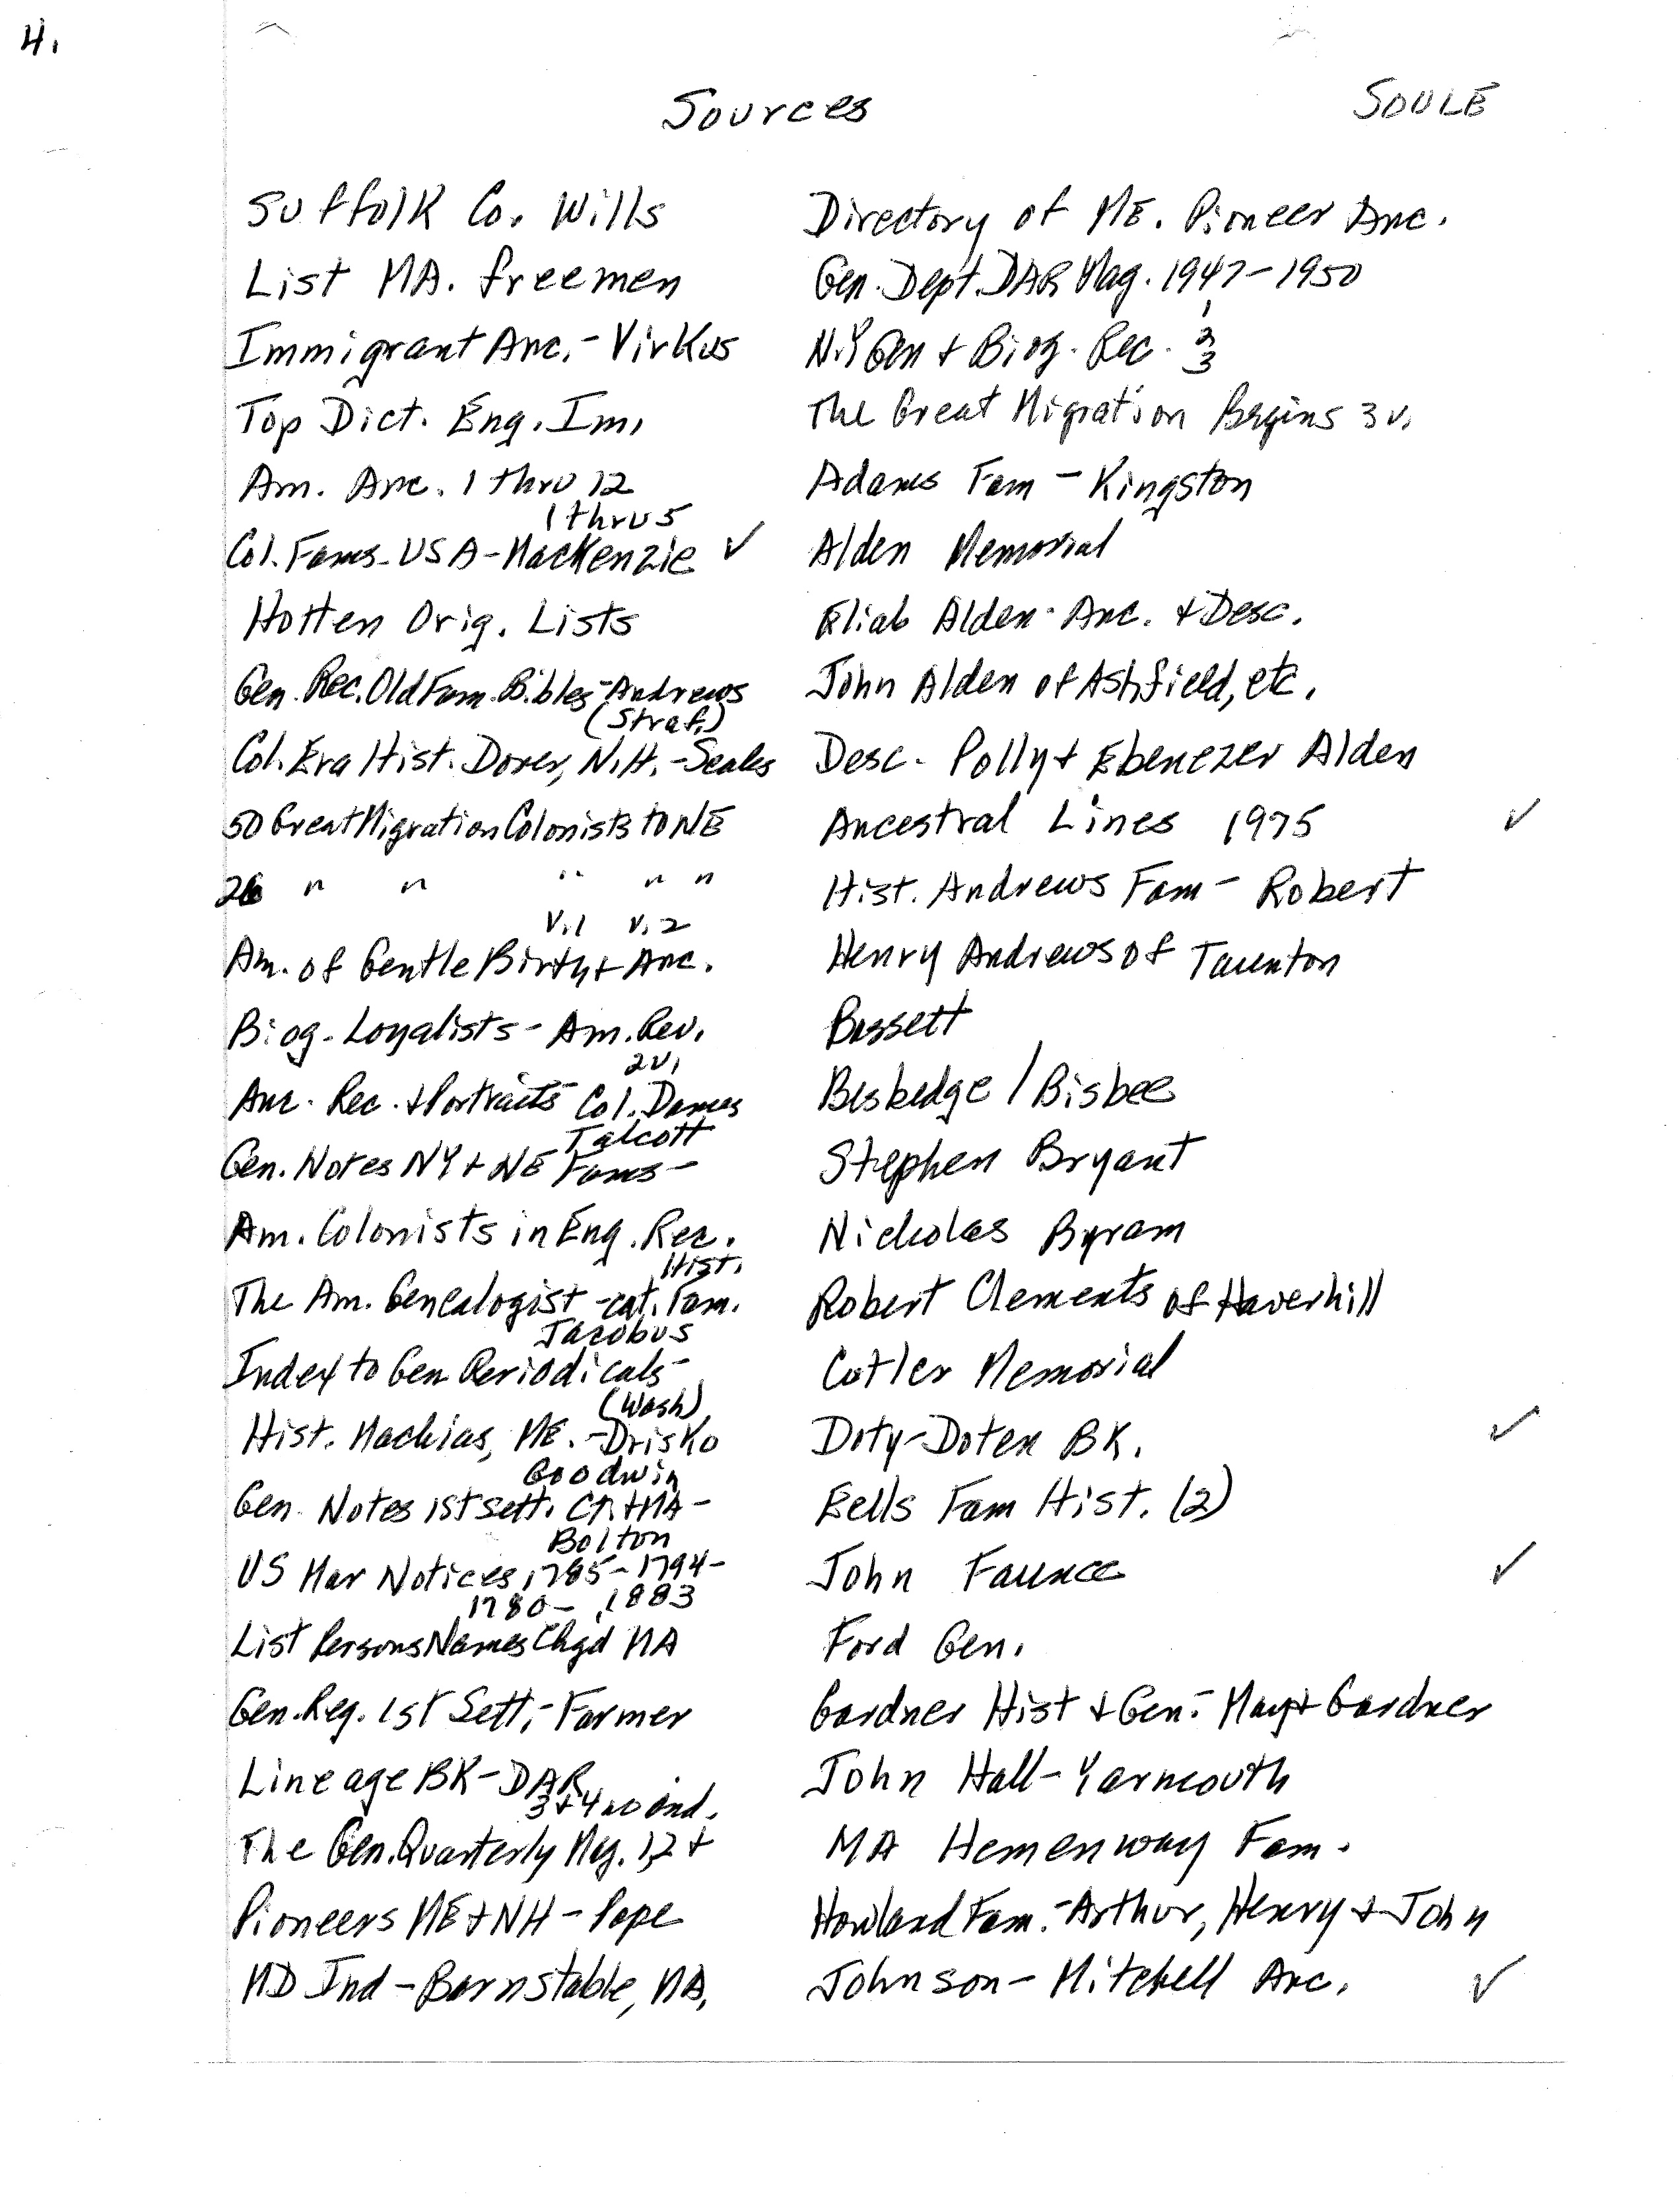 4.
Sources
SOULE
Suffolk Co. Wills
List MA. freemen
Immigrant Anc. - Virkus
Top Dict. Eng. Im.
Am. Anc. 1 thru 12
1 thru 5
Col. Fams - USA - MacKenzie ✓
Hotten Orig. Lists
Gen. Rec. Old Fam. Bibles - Andrews
(Straf.)
Col. Era Hist. Dover, N.H. - Scales
50 Great Migration Colonists to NE
26 " " " " "
V.1 V.2
Am. of Gentle Birth + Anc.
Biog. Loyalists - Am. Rev.
2 v.
Anc. Rec. + Portraits Col. Dames
Talcott
Gen. Notes NY + NE Fams -
Am. Colonists in Eng. Rec.
Hist.
The Am. Genealogist - cat. Fam.
Jacobus
Index to Gen Periodicals -
(Wash)
Hist. Machias, ME. - Drisko
Goodwin
Gen. Notes 1st sett. Ct. + MA -
Bolton
US Mar Notices 1785 - 1794 -
1780 - 1883
List Persons Names Chgd MA
Gen. Reg. 1st Sett. - Farmer
Lineage BK - DAR
3 + 4 no ind.
The Gen. Quarterly Mag. 1,2 +
Pioneers ME + NH - Pope
MD Ind - Barnstable, MA.
Directory of ME. Pioneer Anc.
Gen. Dept. DAR Mag. 1947 - 1950
1
N.Y Gen + Biog. Rec. 2
3
The Great Migration Begins 3 v.
Adams Fam - Kingston
Alden Memorial
Eliab Alden - Anc. + Desc.
John Alden of Ashfield, etc.
Desc. Polly + Ebenezer Alden
Ancestral Lines 1975 ✓
Hist. Andrews Fam - Robert
Henry Andrews of Taunton
Bassett
Besbedge / Bisbee
Stephen Bryant
Nicholas Byram
Robert Clements of Haverhill
Cutler Memorial
Doty - Doten BK. ✓
Eells Fam Hist. (2)
John Faunce ✓
Ford Gen.
Gardner Hist + Gen. - May + Gardner
John Hall - Yarmouth
MA Hemenway Fam.
Howland Fam. - Arthur, Henry + John
Johnson - Mitchell Anc. ✓